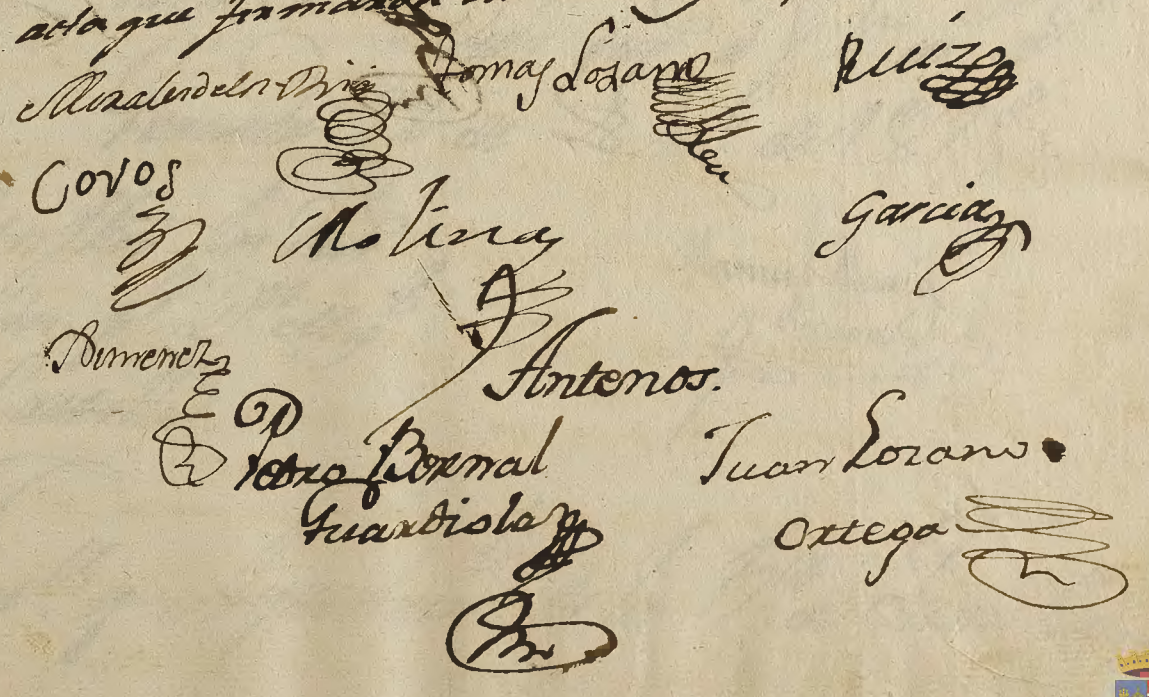 acta que firmaron
Tomas Lozano Ruiz
Leu
Covos Molina Garcia
Ximenez
Antenos.
Pedro Bernal Juan Lozano
Guardiola Ortega